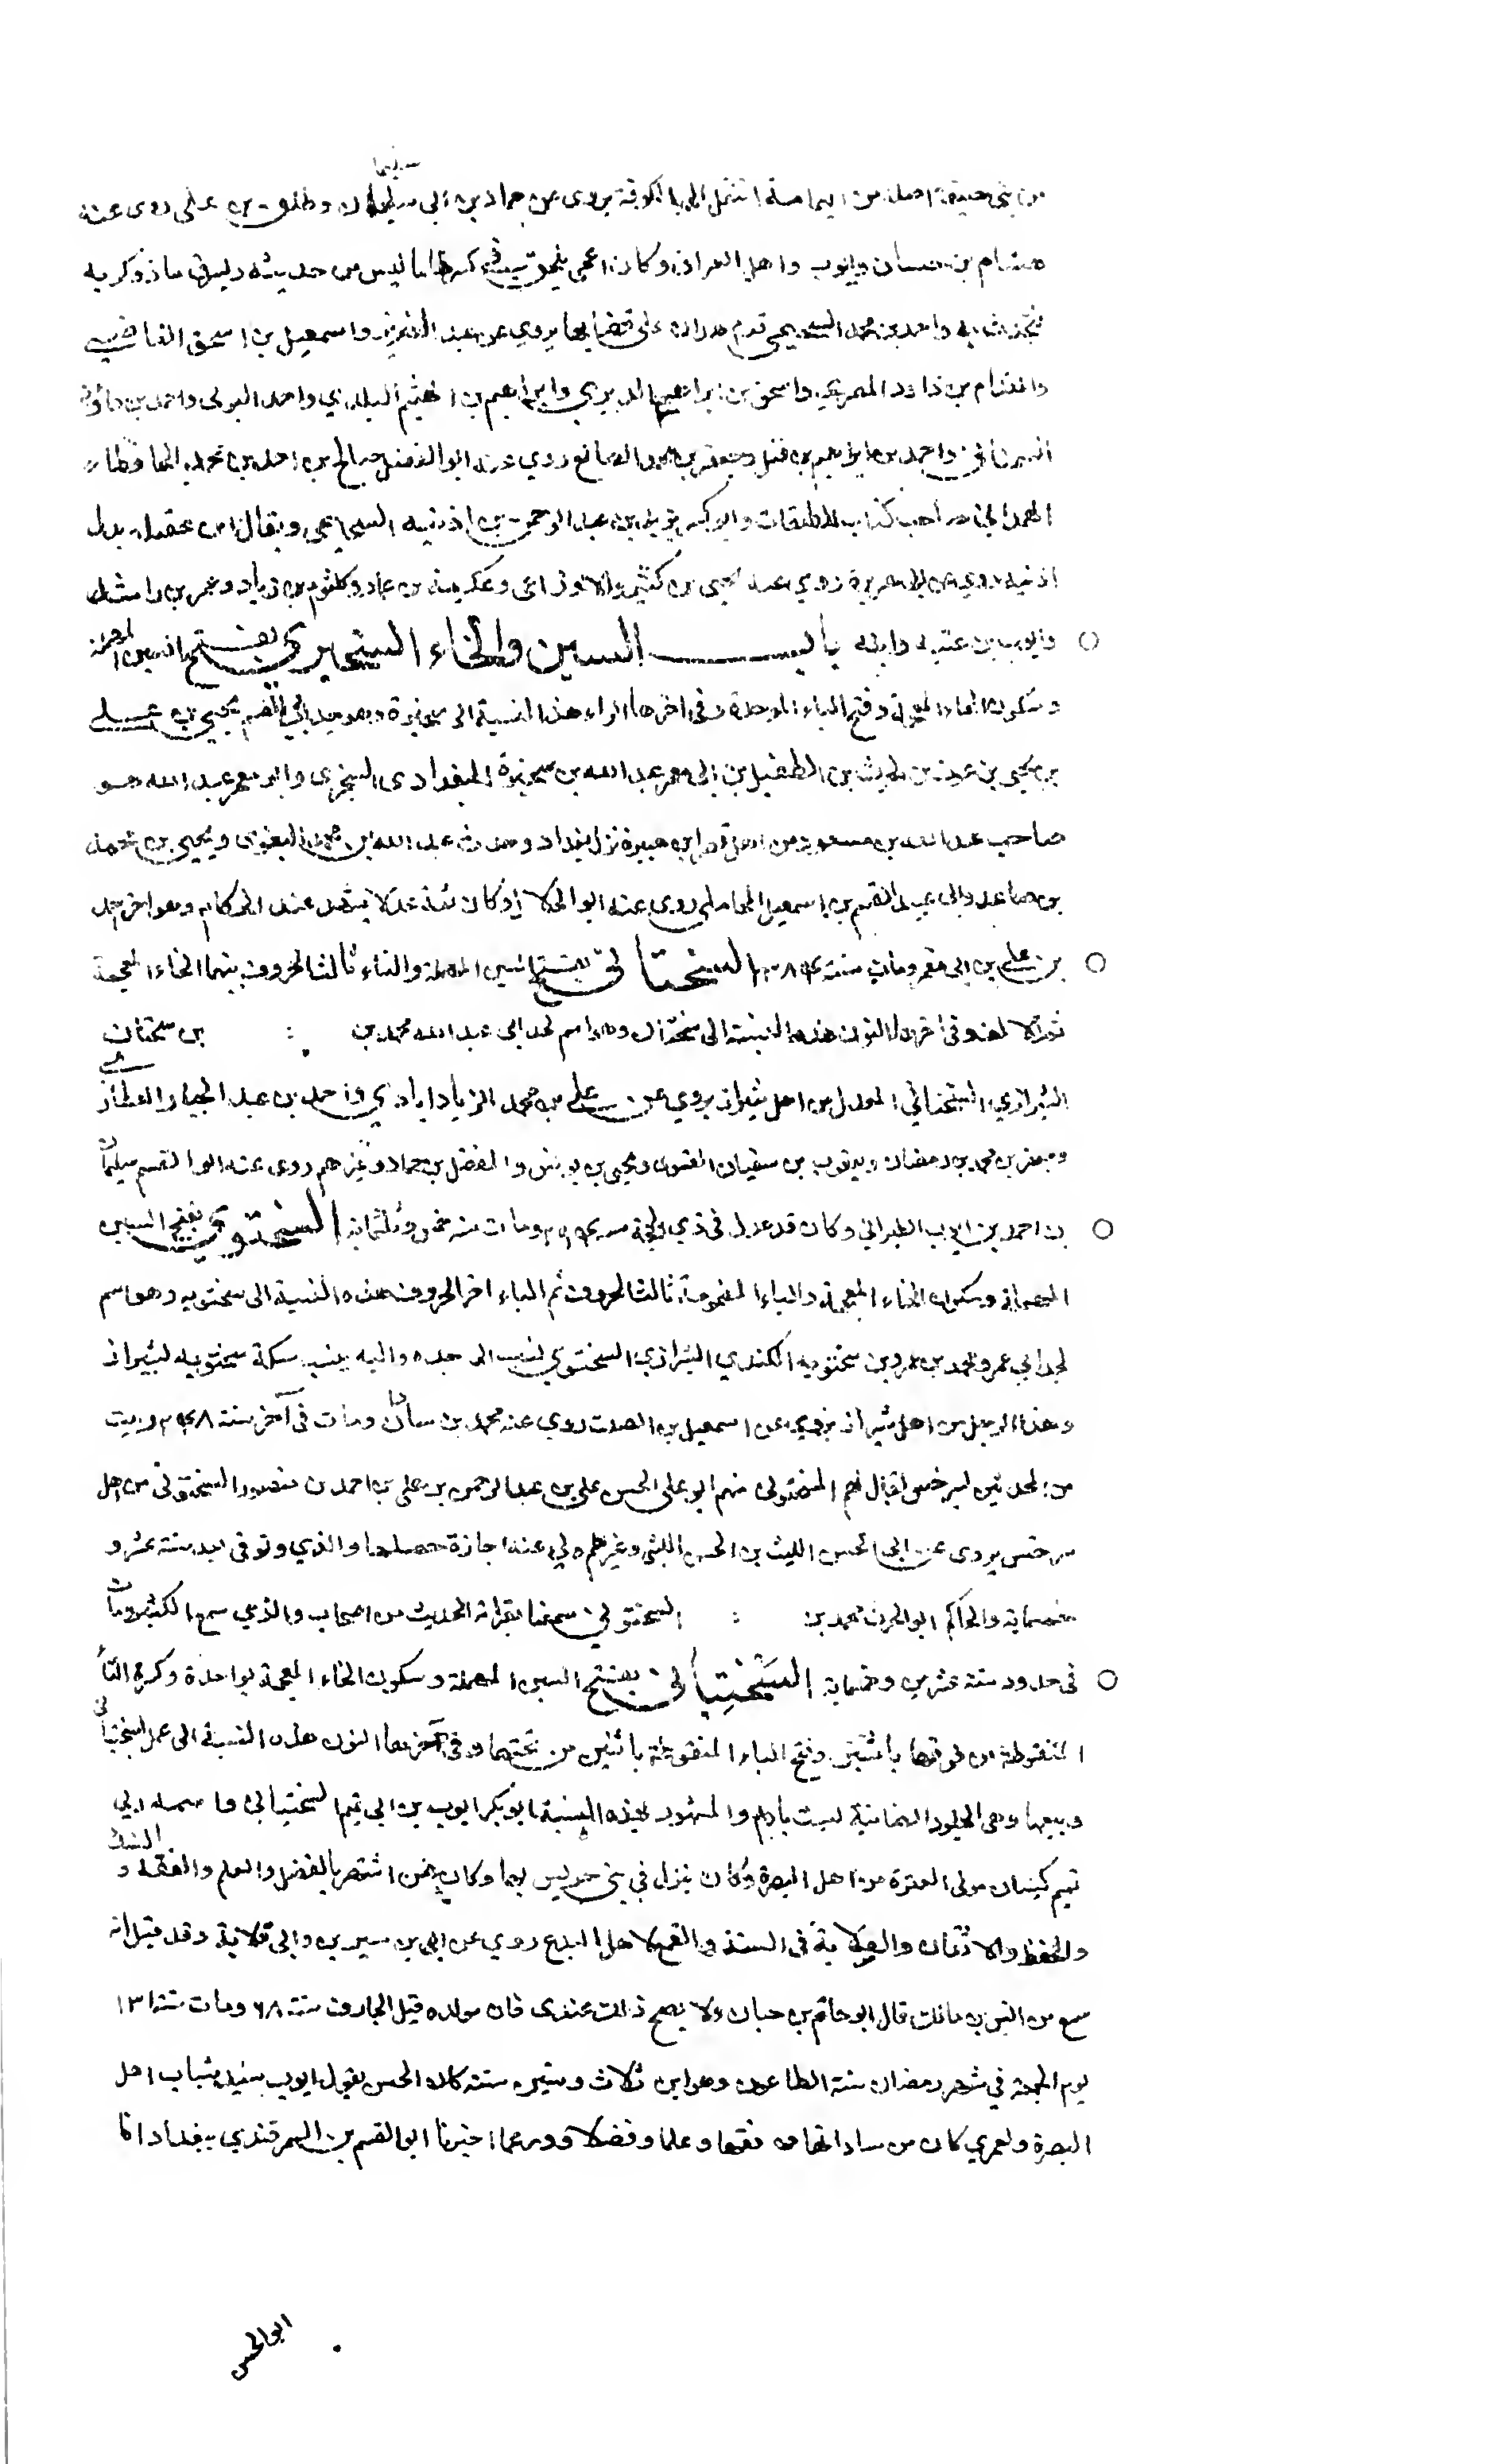 من بني حنيفة اصله من اليمامة انتقل الى الكوفة يروى عن حماد بن ابى سليمان وطلق بن على روى عنه
هشام بن حسان وايوب واهل العراق وكان اعمى يلحق في كتبه ما ليس من حديثه ويسرق ما ذوكر به
فيحدث به واحمد بن محمد السحيمى قدم همدان على قضايها يروي عن عبد العزيز واسمعيل بن اسحق القاضي
والمقدام بن داود المصري واسحق بن ابراهيم الدبري وابراهيم بن الهيثم البلدي واحمد البرتى واحمد بن داود
السمنانى واحمد بن ابراهيم بن فيل وجعفر بن محمد الصايغ روى عنه ابو الفضل صالح بن احمد بن محمد الحافظ
الهمدانى صاحب كتاب الطبقات وابو كثير يزيد بن عبد الرحمن بن اذنيه السحيمى ويقال ابن عقيله بدل
اذنيه روى عن ابى هريرة روى عنه يحيى بن كثير والاوزاعى وعكرمة بن عمار وكلثوم بن زياد وعمر بن راشد
وايوب بن عتبه وابنه باب السين والخاء السخبري بفتح السين المهملة
وسكون الخاء المعجمة وفتح الباء الموحدة وفى اخرها الراء هذه النسبة الى سخبرة وهو جد ابى القسم يحيى بن علي
بن يحيى بن عوف بن الحارث بن الطفيل بن ابى معمر عبد الله بن سخبرة البغدادى السخبرى وابو معمر عبد الله هو
صاحب عبد الله بن مسعود من اهل قصر ابن هبيرة نزل بغداد وحدث عبد الله بن محمد البغوى ويحيى بن محمد
بن صاعد وابى عبيد القسم بن اسمعيل المحاملى روى عنه ابو العلا وكان ثقة عدلا يشهد عند الحكام وهو اخر محمد
بن علي بن ابى معمر ومات سنة ٣٨٤ السختانى بفتح السين المهملة والتاء ثالث الحروف بينهما الخاء المعجمة
ثم الالف وفى اخرها النون هذه النسبة الى سختان وهو اسم لجد ابى عبد الله محمد بن : بن سختان
الشيرازى السختاني المعدل من اهل شيراز يروي عن علي بن محمد الزيادابادي واحمد بن عبد الجبار العطار
وجعفر بن محمد بن رمضان ويعقوب بن سفيان الفسوى ويحيى بن يونس والفضل بن حماد وغيرهم روى عنه ابو القسم سليمان
بن احمد بن ايوب الطبراني وكان قد عدل فى ذي الحجة ومات سنة وثلثماية السختوي بفتح السين
المهملة وسكون الخاء المعجمة والتاء المضمومة ثالث الحروف ثم الياء اخر الحروف هذه النسبة الى سختويه وهو اسم
لجد ابى عمرو محمد بن عمرو بن سختويه الكندي الشيرازى السختوي نسب الى جده واليه ينسب سكة سختويه بشيراز
وهذا الرجل من اهل شيراز يروي عن اسمعيل بن الصلت روى عنه محمد بن شاذان ومات فى آخر سنة وبيت
من المحدثين بسرخس يقال لهم السختوى منهم ابو على الحسن على بن عبد الرحمن بن على بن احمد بن منصور السختوى من اهل
سرخس يروى عن ابى الحسن الليث بن الحسن الليثى وغيرهم ولى عنه اجازة حصلها والدي وتوفى بعد سنة عشر و
خمسماية والحاكم ابو الحرث محمد بن : السختوي سمعنا بقراته الحديث من اصحاب والدي سمع الكثير ومات
فى حدود سنة عشرين وخمسماية السَّخْتِيَانى بفتح السين المهملة وسكون الخاء المعجمة بواحدة وكسر التاء
المنقوطة من فوقها باثنتين وفتح الياء المنقوطة باثنتين من تحتها وفى آخرها النون هذه النسبة الى عمل السختيان
وبيعها وهى الجلود الضانية ليست بادم والمشهور بهذه النسبة ابو بكر ايوب بن ابى تميم السختيانى واسم ابى
تميم كيسان مولى العنزة من اهل البصرة وكان ينزل في بنى حريس بها وكان ممن اشتهر بالفضل والعلم والفقه والنسك
والحفظ والاتقان والصلابة فى السنة والقمع لاهل البدع روي عن ابن سيرين وابى قلابة وقد قيل انه
سمع من انس بن مالك قال ابو حاتم بن حبان ولا يصح ذلك عندى فان مولده قبل الجارف سنة ٦٨ ومات سنة ١٣١
يوم الجمعة في شهر رمضان سنة الطاعون وهو ابن ثلاث وستين سنة كان الحسن يقول ايوب سيد شباب اهل
البصرة ولعمري كان من ساداتها فقها وعلما وفضلا وورعا اخبرنا ابو القسم بن السمرقندي ببغداد انا
ابو الحسن